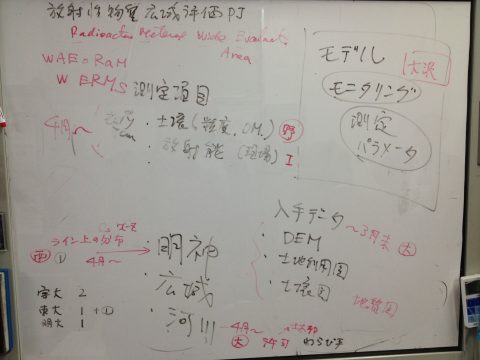 放射性物質広域評価PJ
Radioactive Material Wide Evaluate
Area
WAE・RaM
WERMS 測定項目
4月〜
・土壌(粒度,OM) 野
・放射能(現場) I
モデル 大沢
モニタリング
測定
パラメータ
入手データ 〜3月末 大
・DEM
・土地利用図
・土壌図
地質図
Cs
ライン上の分布
西 ① 4月〜
・明神
・広域
・河川
宇大 2
東大 1 + ①
明大 1
4月〜
大 許可 わらび平